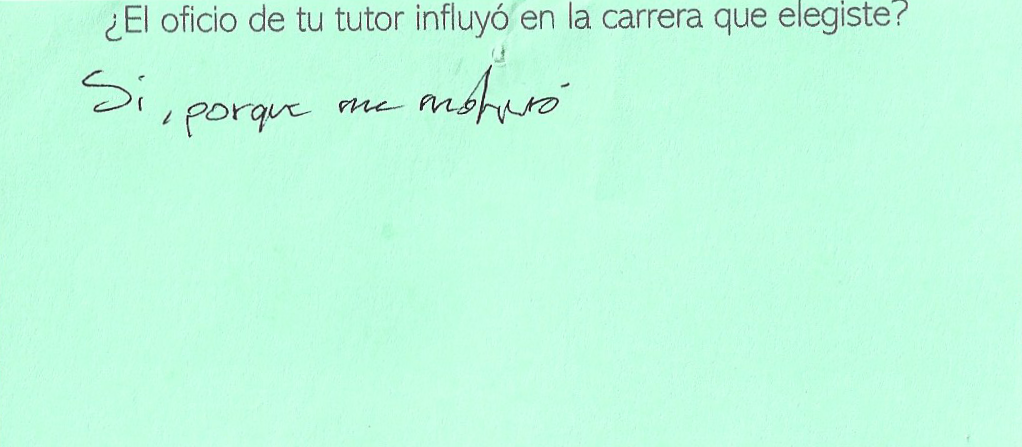 ¿El oficio de tu tutor influyó en la carrera que elegiste?
Si, porque me motivó